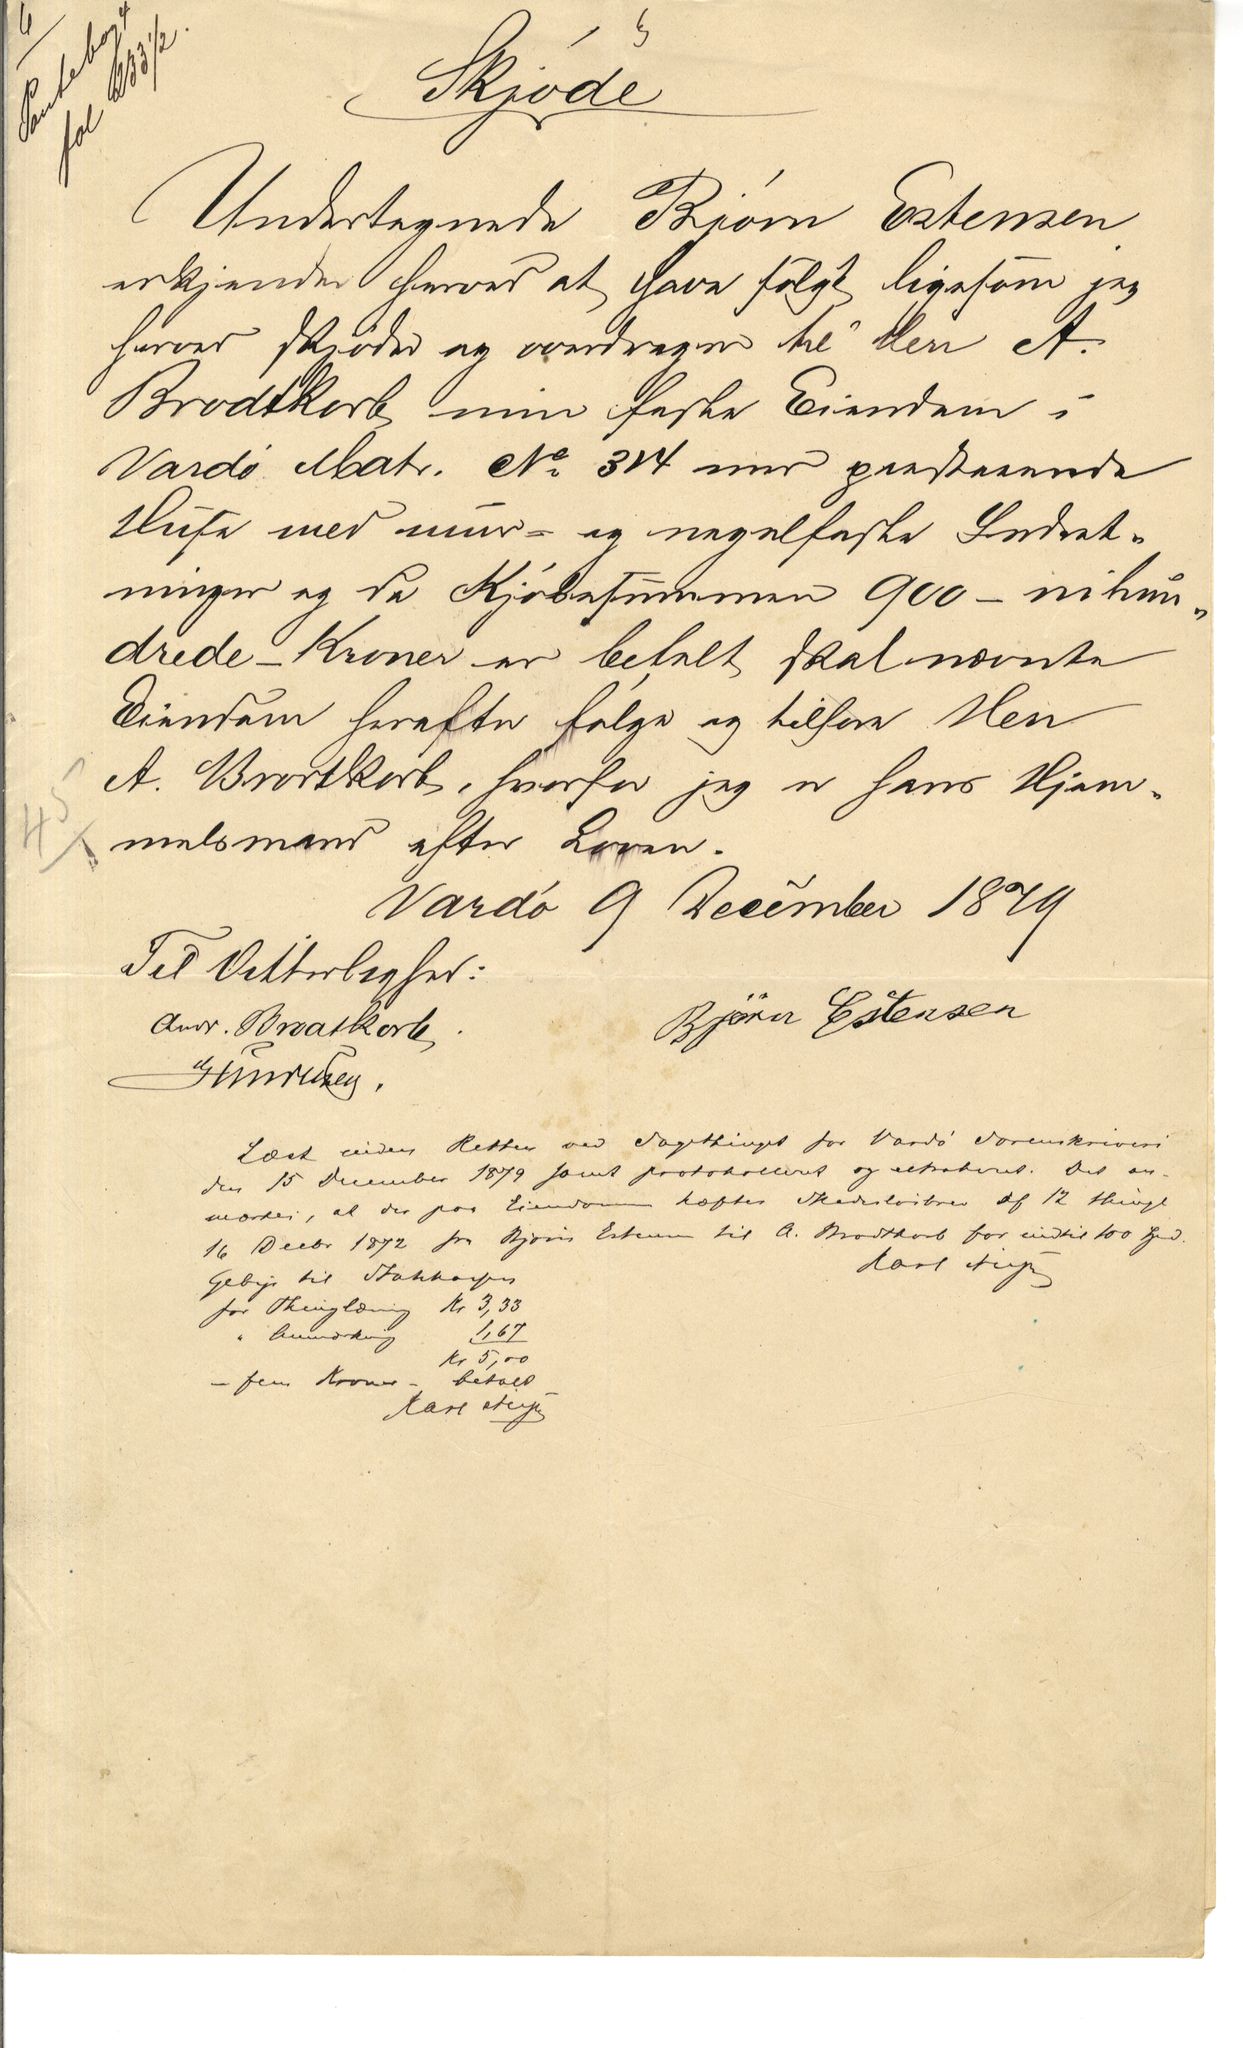 6
Pantebog 4
fol 233 1/2.
Skjøde
Undertegnede Bjørn Estensen
erkjender herved at have solgt ligesom jeg
herved skjøder og overdrager til Herr A.
Brodtkorb min faste Eiendom i
Vardø Matr. No 314 med paastaaende
Huse med muur- og nagelfaste Indret-
ninger og da Kjøbesummen 900 - nihun-
drede - Kroner er betalt skal nævnte
Eiendom herefter følge og tilhøre Herr
A. Brodtkorb, hvorfor jeg er hans Hjem-
melsmand efter Loven.
Vardø 9 December 1879
Til Vitterlighed:
Andr. Brodtkorb.
Björn Estensen
Læst inden Retten ved Dagthinget for Vardø Sorenskriveri
den 15 December 1879 samt protokolleret og extraheret. Det an-
mærkes, at der paa Eiendommen hæfter Skadesløsbrev af 12 thingl
16 Decbr 1872 fra Bjørn Estensen til A. Brodtkorb for indtil 100 Spd.
Karl
Gebyr til Statskassen
for Thinglæsning Kr 3,33
" Anmærkning 1,67
Kr 5,00
- fem Kroner - betalt
Karl